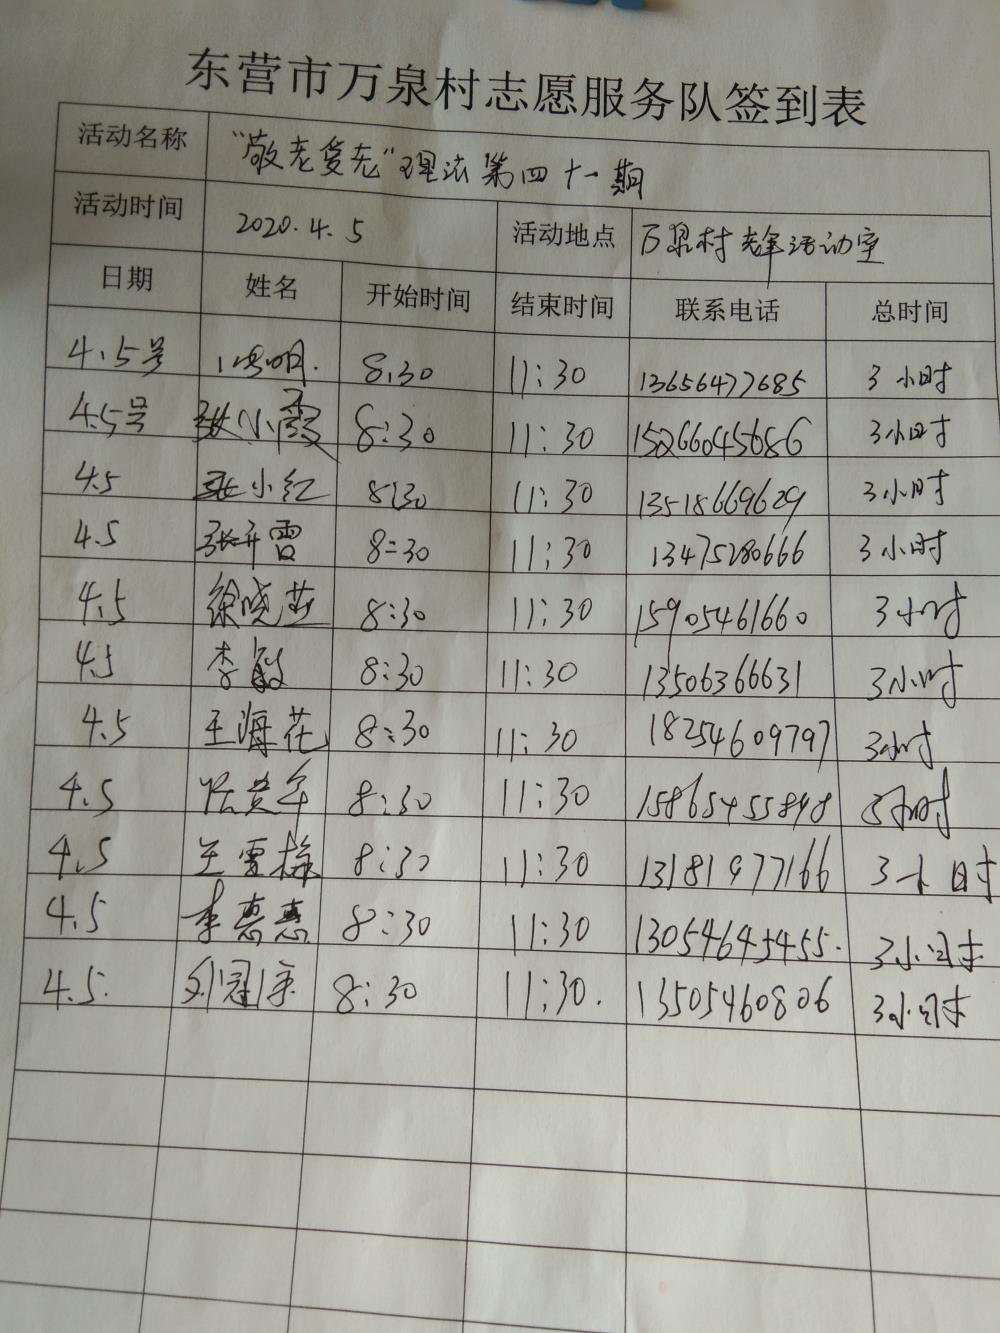 东营市万泉村志愿服务队签到表
活动名称 "敬老爱老"理法第四十一期
活动时间 2020.4.5 活动地点 万泉村老年活动室
日期 姓名 开始时间 结束时间 联系电话 总时间
4.5号 8:30 11:30 13656477685 3小时
4.5号 张小霞 8:30 11:30 15266045686 3小时
4.5 张小红 8:30 11:30 13518669629 3小时
4.5 8:30 11:30 13475280666 3小时
4.5 徐晓燕 8:30 11:30 15905461660 3小时
4.5 李敏 8:30 11:30 13506366631 3小时
4.5 王海花 8:30 11:30 18254609797 3小时
4.5 8:30 11:30 15865455898 3小时
4.5 王雪梅 8:30 11:30 13181977166 3小时
4.5 李惠惠 8:30 11:30 13054645455. 3小时
4.5. 8:30 11:30. 13505460806 3小时